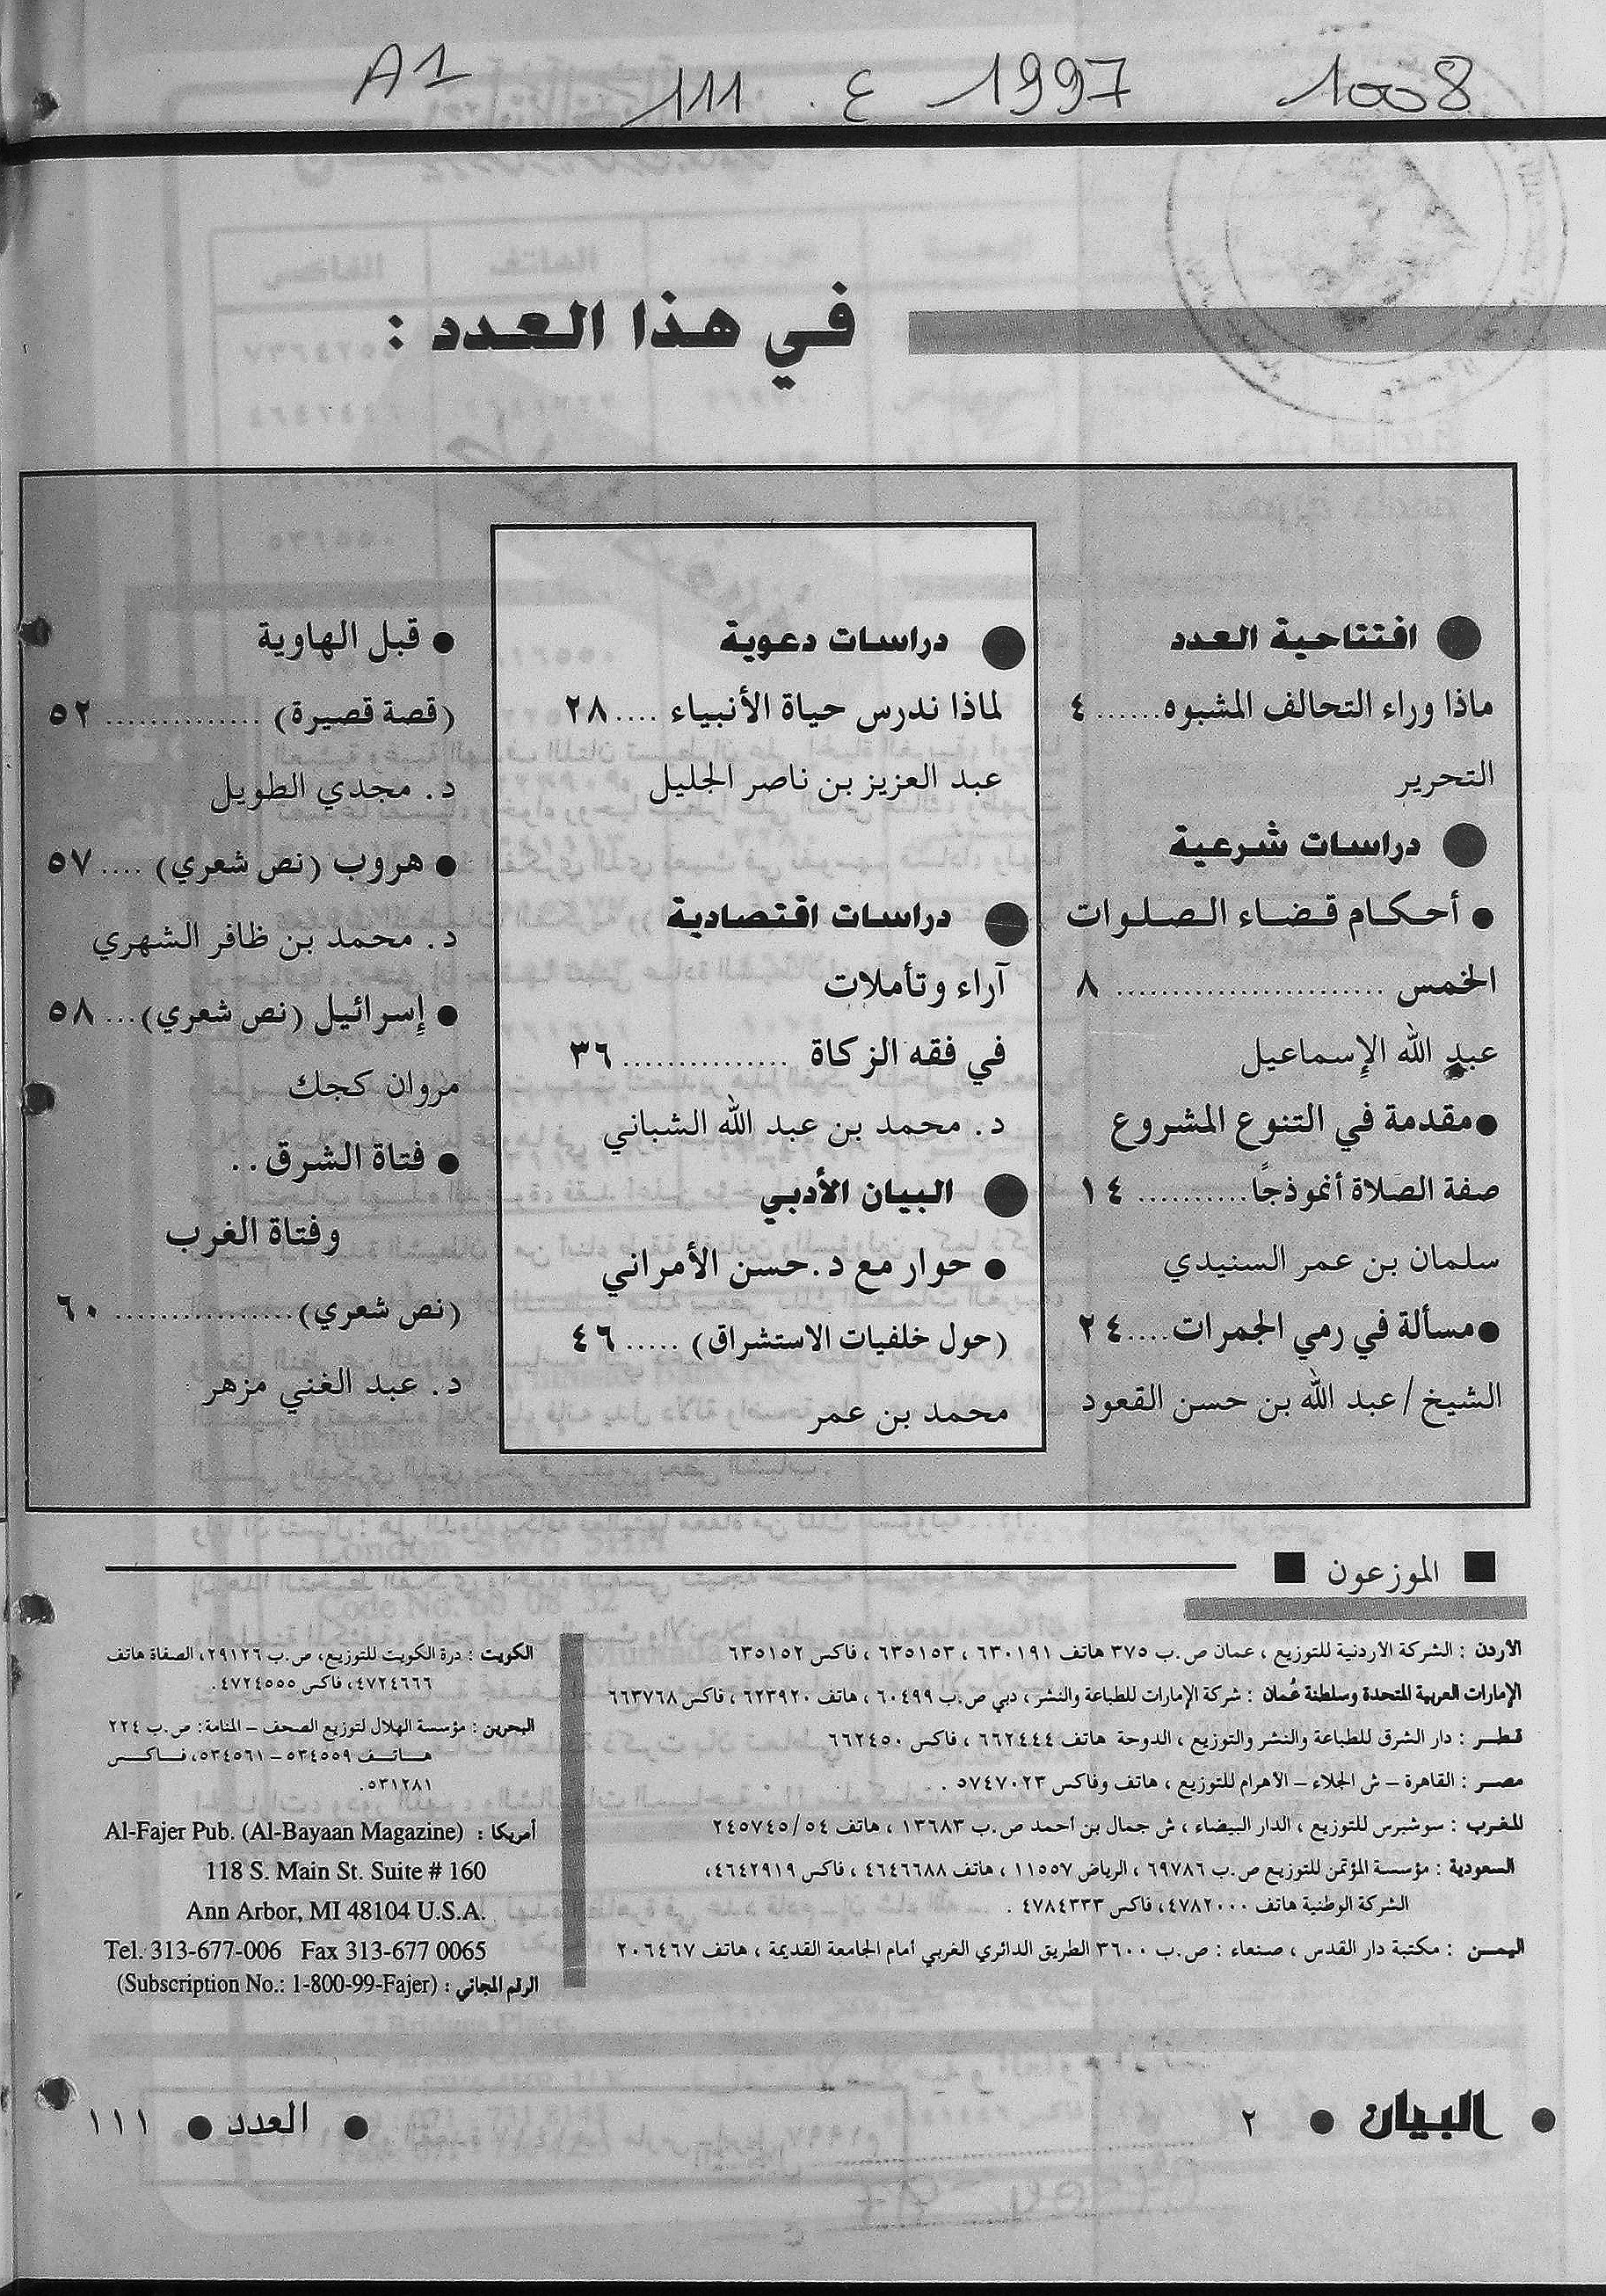 A1 111 ع 1997 1008
في هذا العدد :
● افتتاحية العدد
ماذا وراء التحالف المشبوه......٤
التحرير
● دراسات شرعية
● أحكام قضاء الصلوات
الخمس ........................ ٨
عبد الله الإسماعيل
● مقدمة في التنوع المشروع
صفة الصلاة أنموذجًا.......... ١٤
سلمان بن عمر السنيدي
● مسألة في رمي الجمرات....٢٤
الشيخ / عبد الله بن حسن القعود
● دراسات دعوية
لماذا ندرس حياة الأنبياء ....٢٨
عبد العزيز بن ناصر الجليل
● دراسات اقتصادية
آراء وتأملات
في فقه الزكاة ...............٣٦
د. محمد بن عبد الله الشباني
● البيان الأدبي
● حوار مع د.حسن الأمراني
(حول خلفيات الاستشراق) .....٤٦
محمد بن عمر
● قبل الهاوية
(قصة قصيرة) .............. ٥٢
د. مجدي الطويل
● هروب (نص شعري) ....٥٧
د. محمد بن ظافر الشهري
● إسرائيل (نص شعري)...٥٨
مروان كجك
● فتاة الشرق..
وفتاة الغرب
(نص شعري)................٦٠
د. عبد الغني مزهر
■ الموزعون ■
الأردن : الشركة الأردنية للتوزيع ، عمان ص.ب ٣٧٥ هاتف ٦٣٠١٩١ ، ٦٣٥١٥٣ ، فاكس ٦٣٥١٥٢
الإمارات العربية المتحدة وسلطنة عُمان : شركة الإمارات للطباعة والنشر ، دبي ص.ب ٦٠٤٩٩ ، هاتف ٦٢٣٩٢٠ ، فاكس ٦٦٣٧٦٨
قطـر : دار الشرق للطباعة والنشر والتوزيع ، الدوحة هاتف ٦٦٢٤٤٤ ، فاكس ٦٦٢٤٥٠
مصـر : القاهرة – ش الجلاء – الأهرام للتوزيع ، هاتف وفاكس ٥٧٤٧٠٢٣ .
المغـرب : سوشبرس للتوزيع ، الدار البيضاء ، ش جمال بن أحمد ص.ب ١٣٦٨٣ ، هاتف ٢٤٥٧٤٥/٥٤
السعودية : مؤسسة المؤتمن للتوزيع ص.ب ٦٩٧٨٦ ، الرياض ١١٥٥٧ ، هاتف ٤٦٤٦٦٨٨ ، فاكس ٤٦٤٢٩١٩،
الشركة الوطنية هاتف ٤٧٨٢٠٠٠، فاكس ٤٧٨٤٣٣٣ .
اليمـن : مكتبة دار القدس ، صنعاء : ص.ب ٣٦٠٠ الطريق الدائري الغربي أمام الجامعة القديمة ، هاتف ٢٠٦٤٦٧
الكويت : درة الكويت للتوزيع، ص.ب ٢٩١٢٦، الصفاة هاتف
٤٧٢٤٦٦٦، فاكس ٤٧٢٤٥٥٥.
البحرين : مؤسسة الهلال لتوزيع الصحف – المنامة: ص.ب ٢٢٤
هـاتـف ٥٣٤٥٥٩ – ٥٣٤٥٦١، فـاكـس
٥٣١٢٨١.
أمريكا : Al-Fajer Pub. (Al-Bayaan Magazine)
118 S. Main St. Suite # 160
Ann Arbor, MI 48104 U.S.A.
Tel. 313-677-006 Fax 313-677 0065
الرقم المجاني : (Subscription No.: 1-800-99-Fajer)
● البيان ● ٢
● العدد ● ١١١